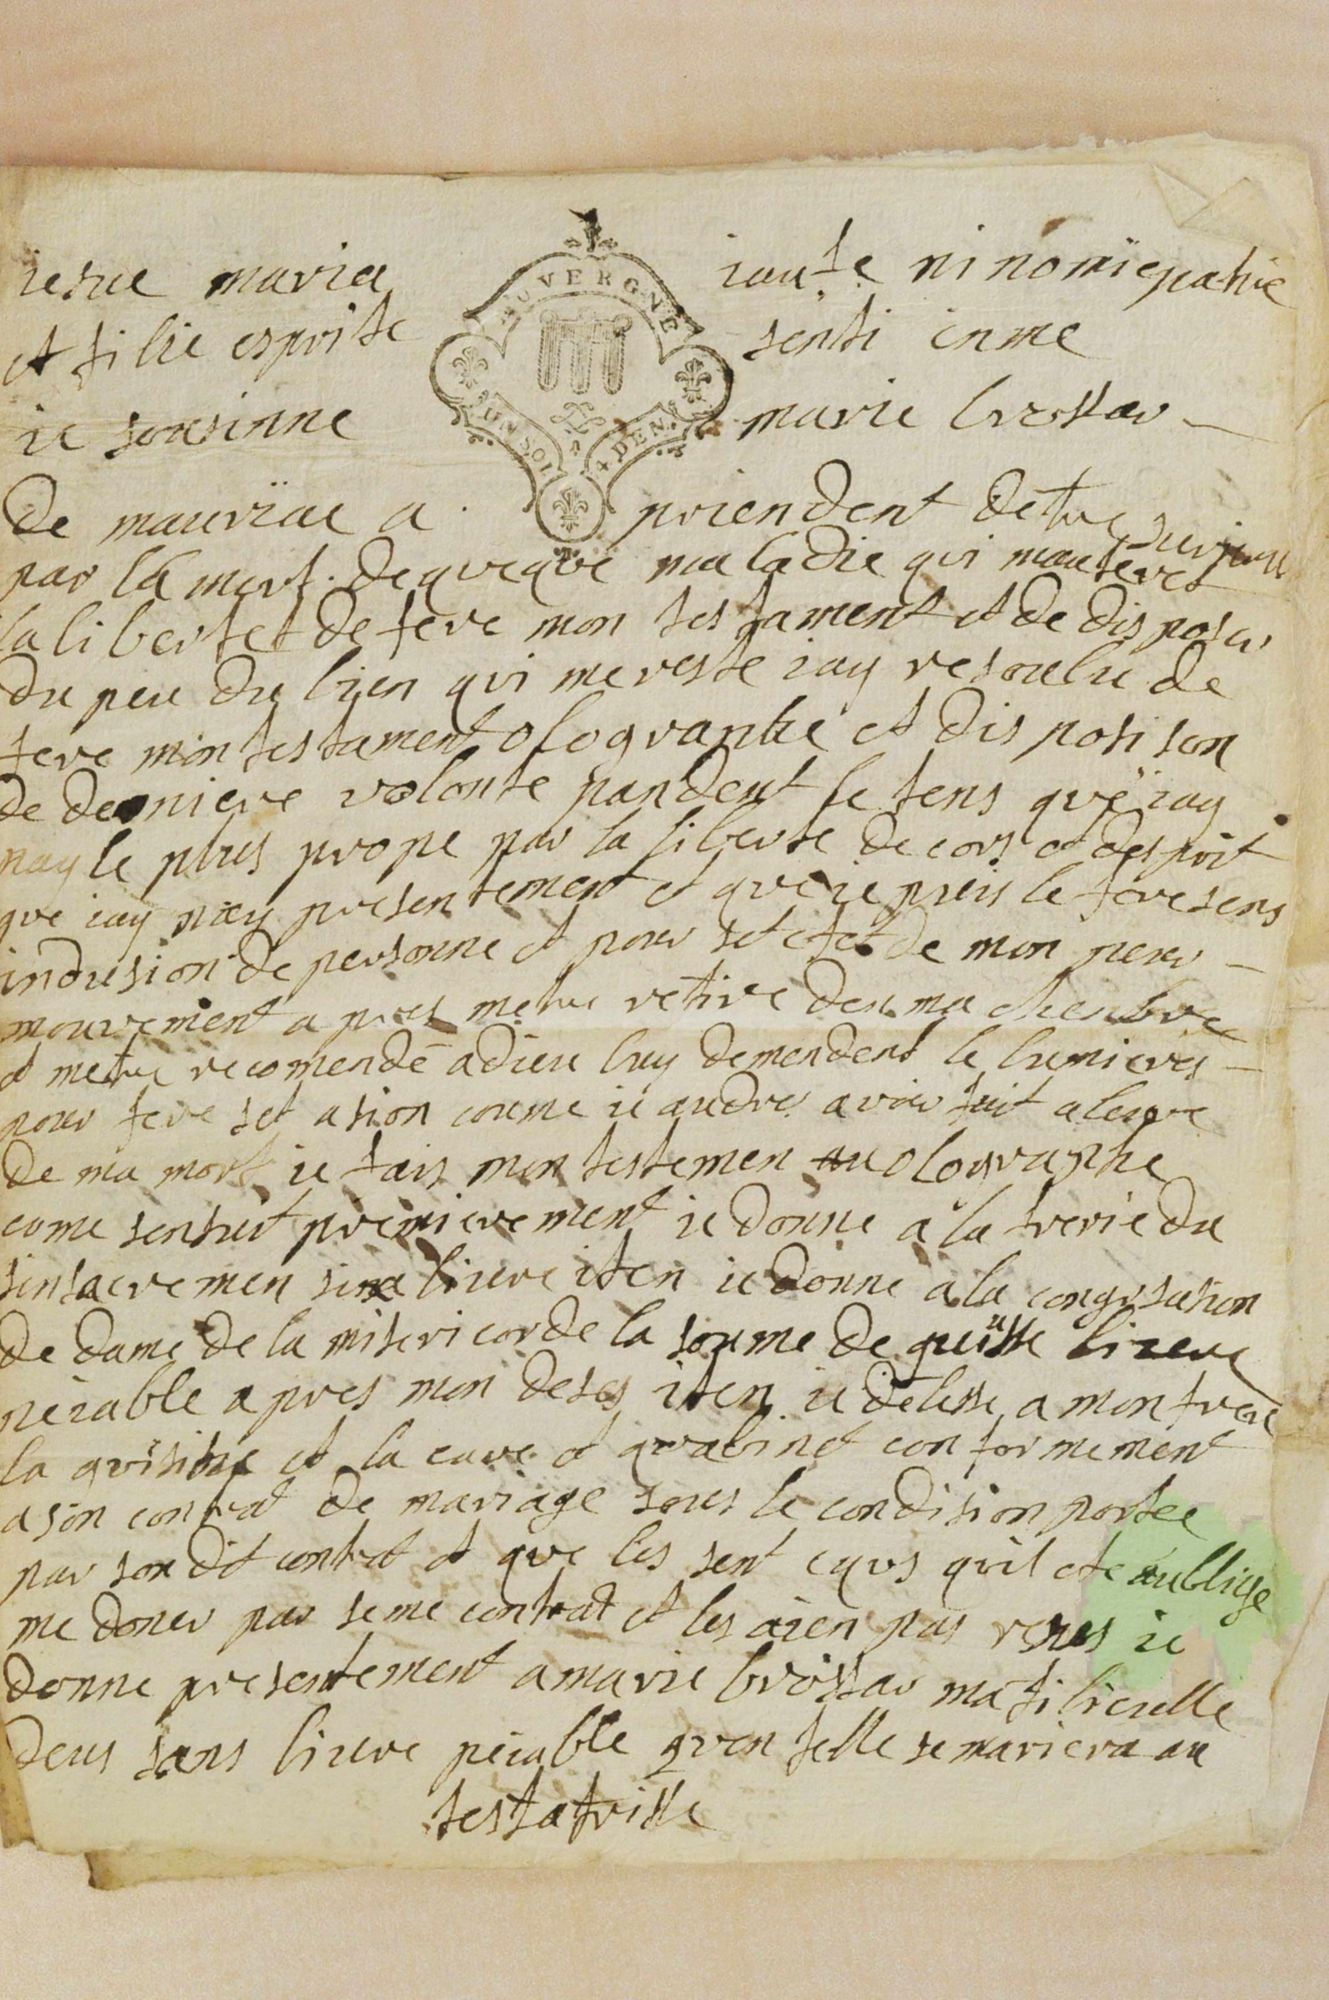 iesue maria iause ni nomie patrie
et filie esprite senti in me
AUVERGNE
UN SOL 4 DEN.
ie sousinne marie brossar
de mauriac a priendent detre surprise
par la mort. de queque maladie qui mauteret
la libertet de fere mon testament et de disposer
du peu du bien qui me reste iay resoulu de
fere mon testament olographe et disposison
de derniere volonte pandent le tens que iay
nay le plus prope par la liberte de cors et desprit
que iay nay presentement et que ie puis le fere sens
indusion de personne et pour set efet de mon peur
mouvement apres metre retire den ma chenbre
et metre recomende a dieu luy demendent le lumieres
pour fere set asion coume ie audres avoir fait aleure
de ma mort ie fais mon testemen olographe
come sensuit premierement ie donne a la frerie du
sinsacremen sinc livre iten ie donne a la congresasion
de dame de la misericorde la soume de quinsse livre
peiable apres mon deses iten ie delesse a mon frere
la quisine et la cave et quabinet conformement
a son contrat de mariage sous le condision portee
par son dit contrat et que les sent equs quil ete aublige
me doner par seme contrat et les aien pas reseus ie
donne presentement a marie brossar ma filieulle
deus sans livre peiable quen selle se mariera au
testatrisse